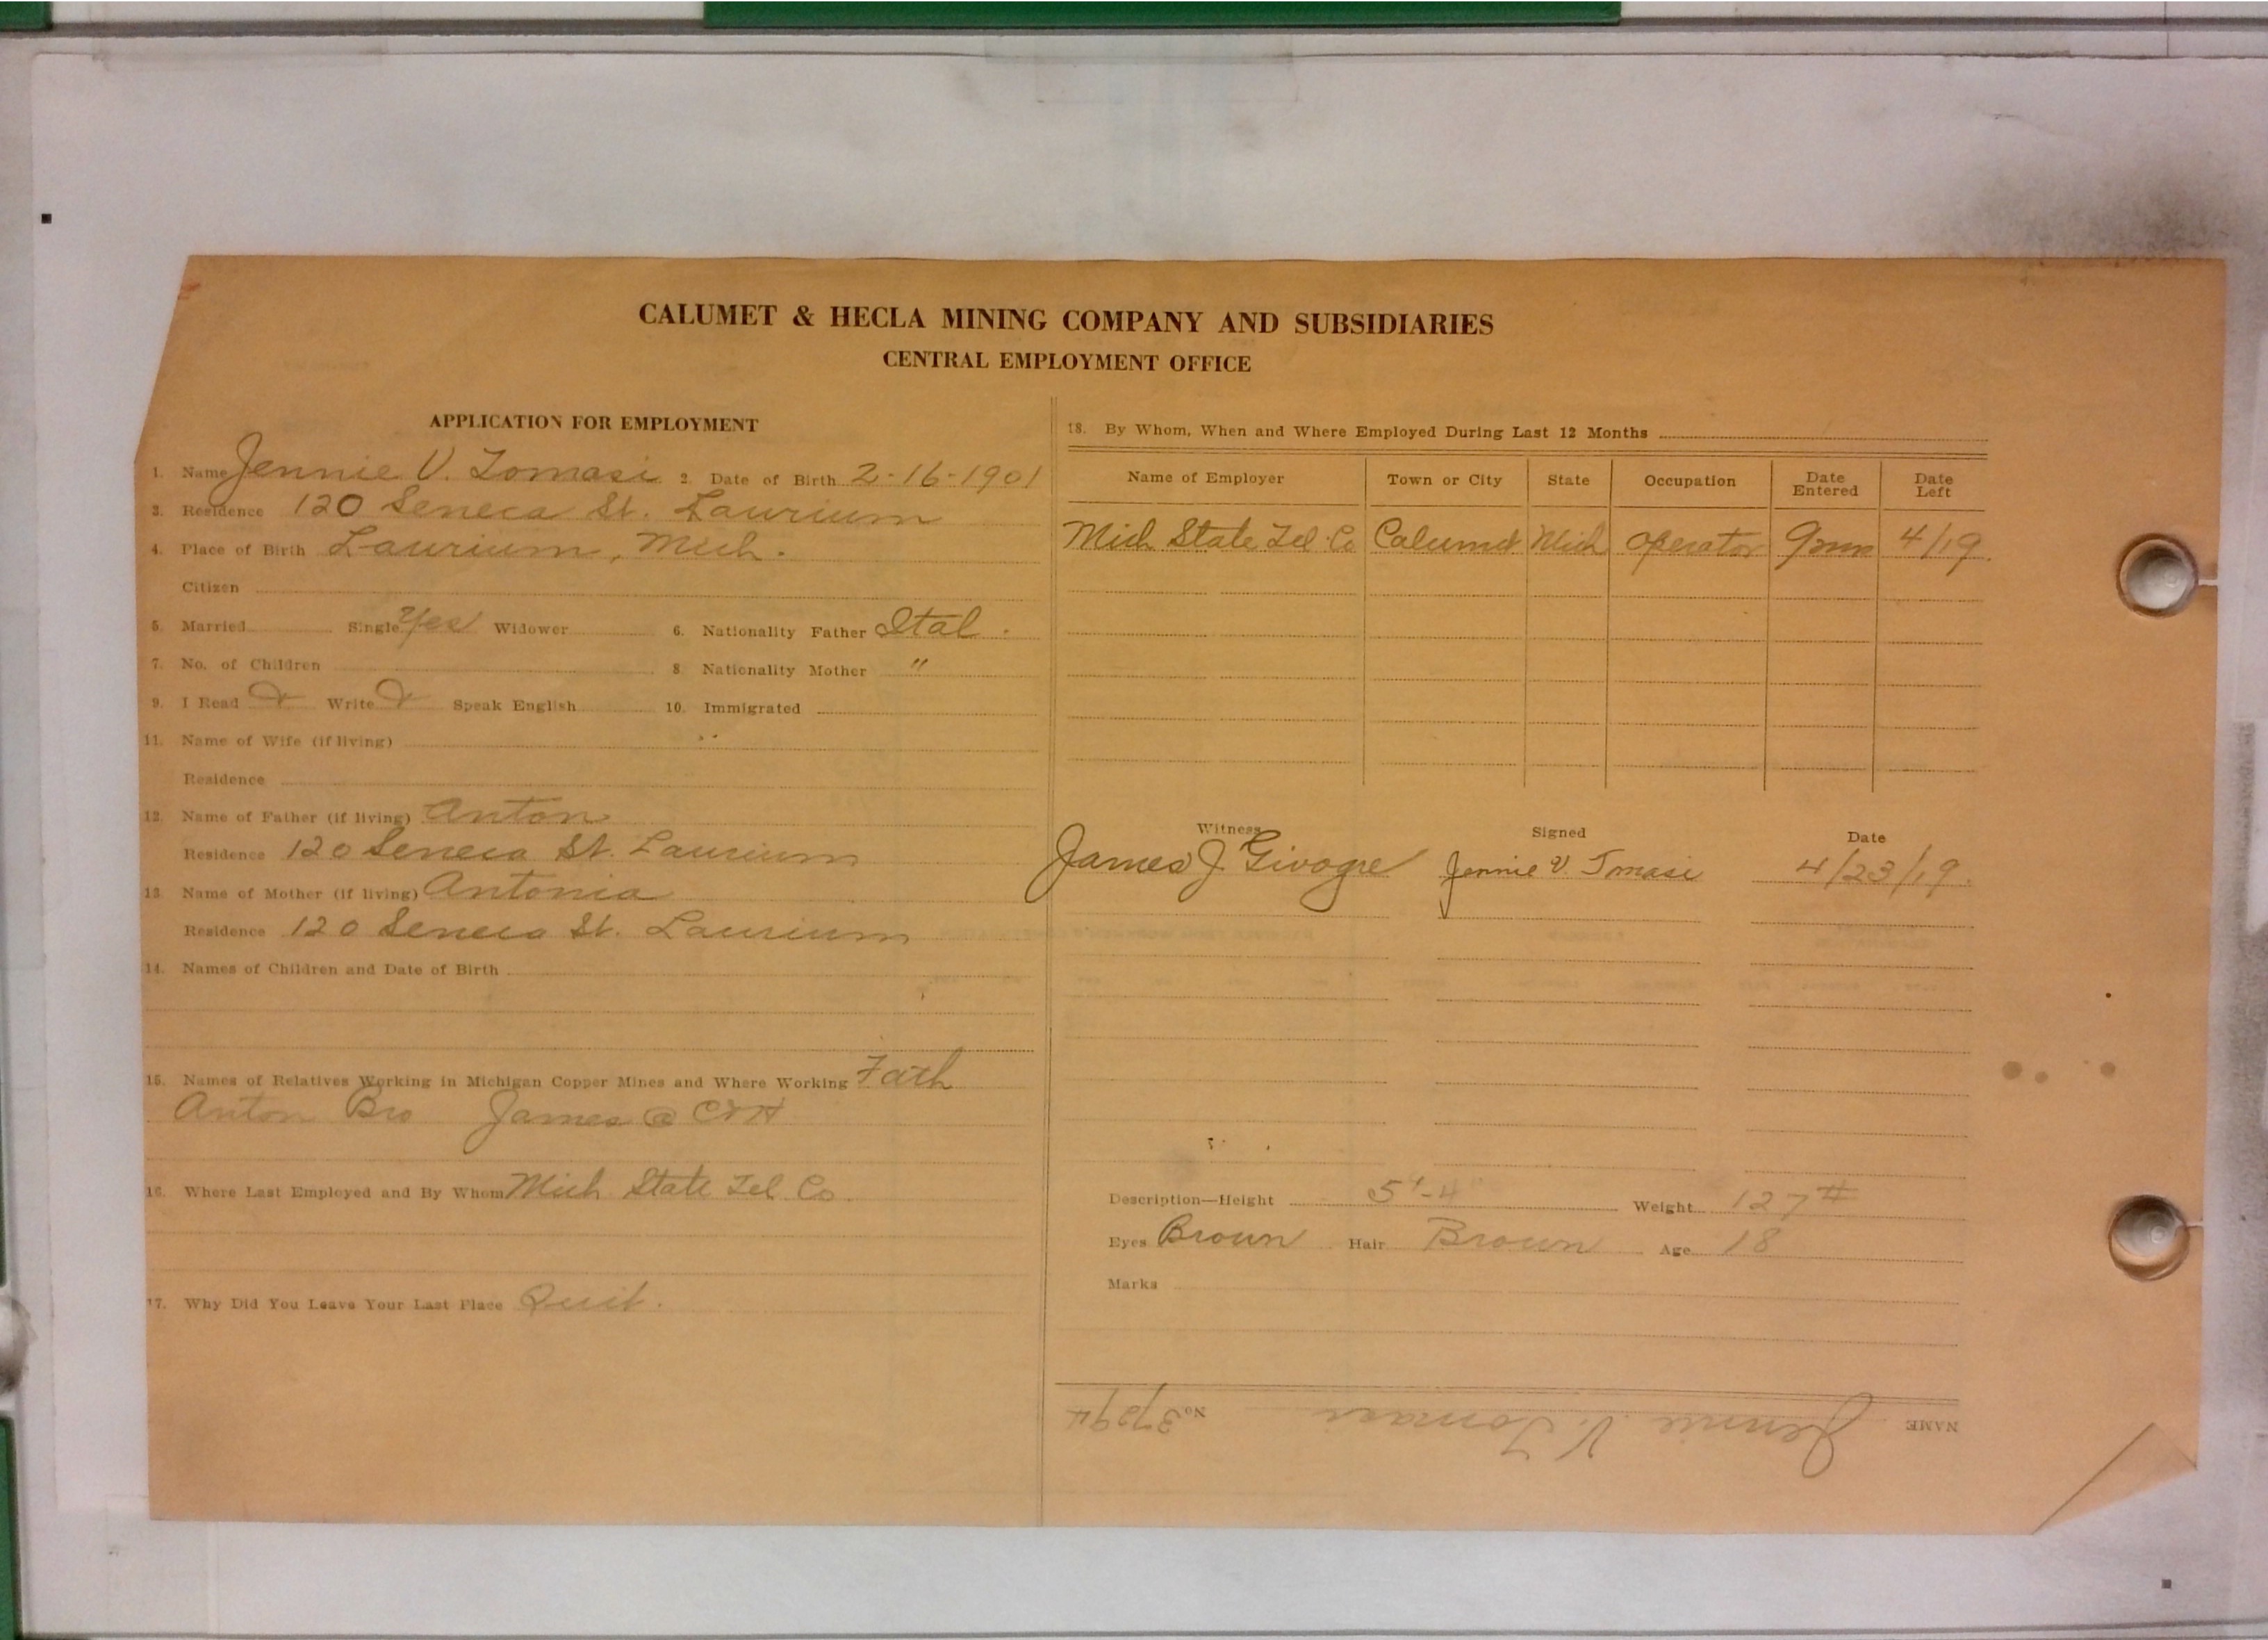 CALUMET & HECLA MINING COMPANY AND SUBSIDIARIES
CENTRAL EMPLOYMENT OFFICE
APPLICATION FOR EMPLOYMENT
1. Name Jennie V. Tomasi 2. Date of Birth 2-16-1901
3. Residence 120 Seneca St. Laurium
4. Place of Birth Laurium, Mich.
Citizen
5. Married Single Yes Widower 6. Nationality Father Ital.
7. No. of Children 8. Nationality Mother "
9. I Read Write Speak English 10. Immigrated
11. Name of Wife (if living)
Residence
12. Name of Father (if living) Anton
Residence 120 Seneca St. Laurium
13. Name of Mother (if living) Antonia
Residence 120 Seneca St. Laurium
14. Names of Children and Date of Birth
15. Names of Relatives Working in Michigan Copper Mines and Where Working Fath
Anton Bro James @ C&H
16. Where Last Employed and By Whom Mich State Tel Co.
17. Why Did You Leave Your Last Place Quit.
18. By Whom, When and Where Employed During Last 12 Months
Name of Employer Town or City State Occupation Date Entered Date Left
Mich State Tel. Co Calumet Mich operator 9mn 4/19.
Witness Signed Date
James J. Givogre Jennie V. Tomasi 4/23/19.
Description—Height 5'-4" Weight 127#
Eyes Brown Hair Brown Age 18
Marks
NAME Jennie V. Tomasi No. 37294